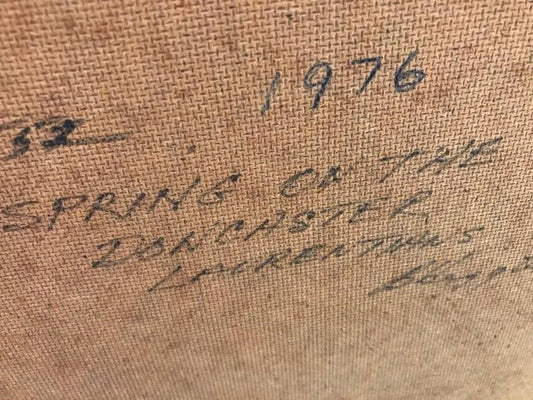 1976
32
SPRING ON THE
DONCASTER
LAURENTIANS